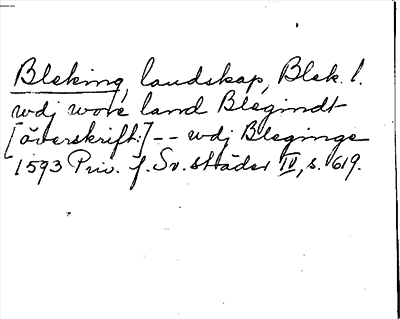 Bleking, landskap, Blek. l.
wdj wore land Blegindt
[överskrift:] -- wdj Bleginge
1593 Priv. f. Sv. städer IV, s. 619.